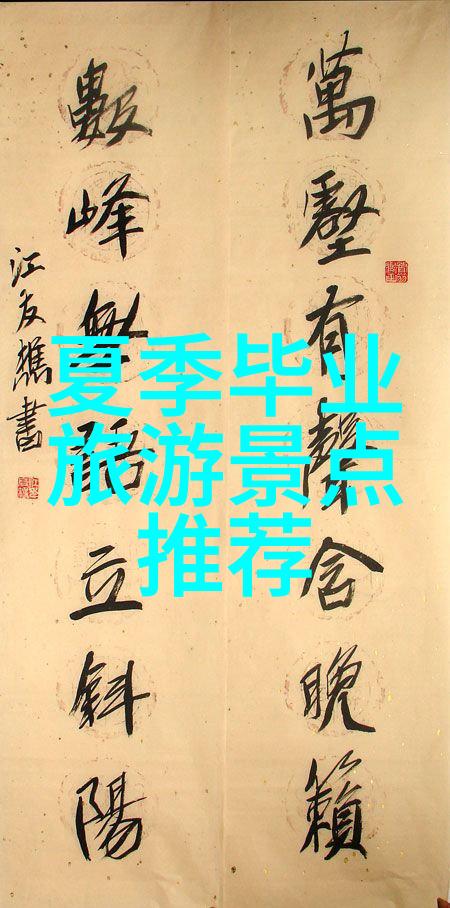 萬壑有聲含晚籟
數峰無語立斜陽
江友樵書
夏季毕业
旅游景点
推荐